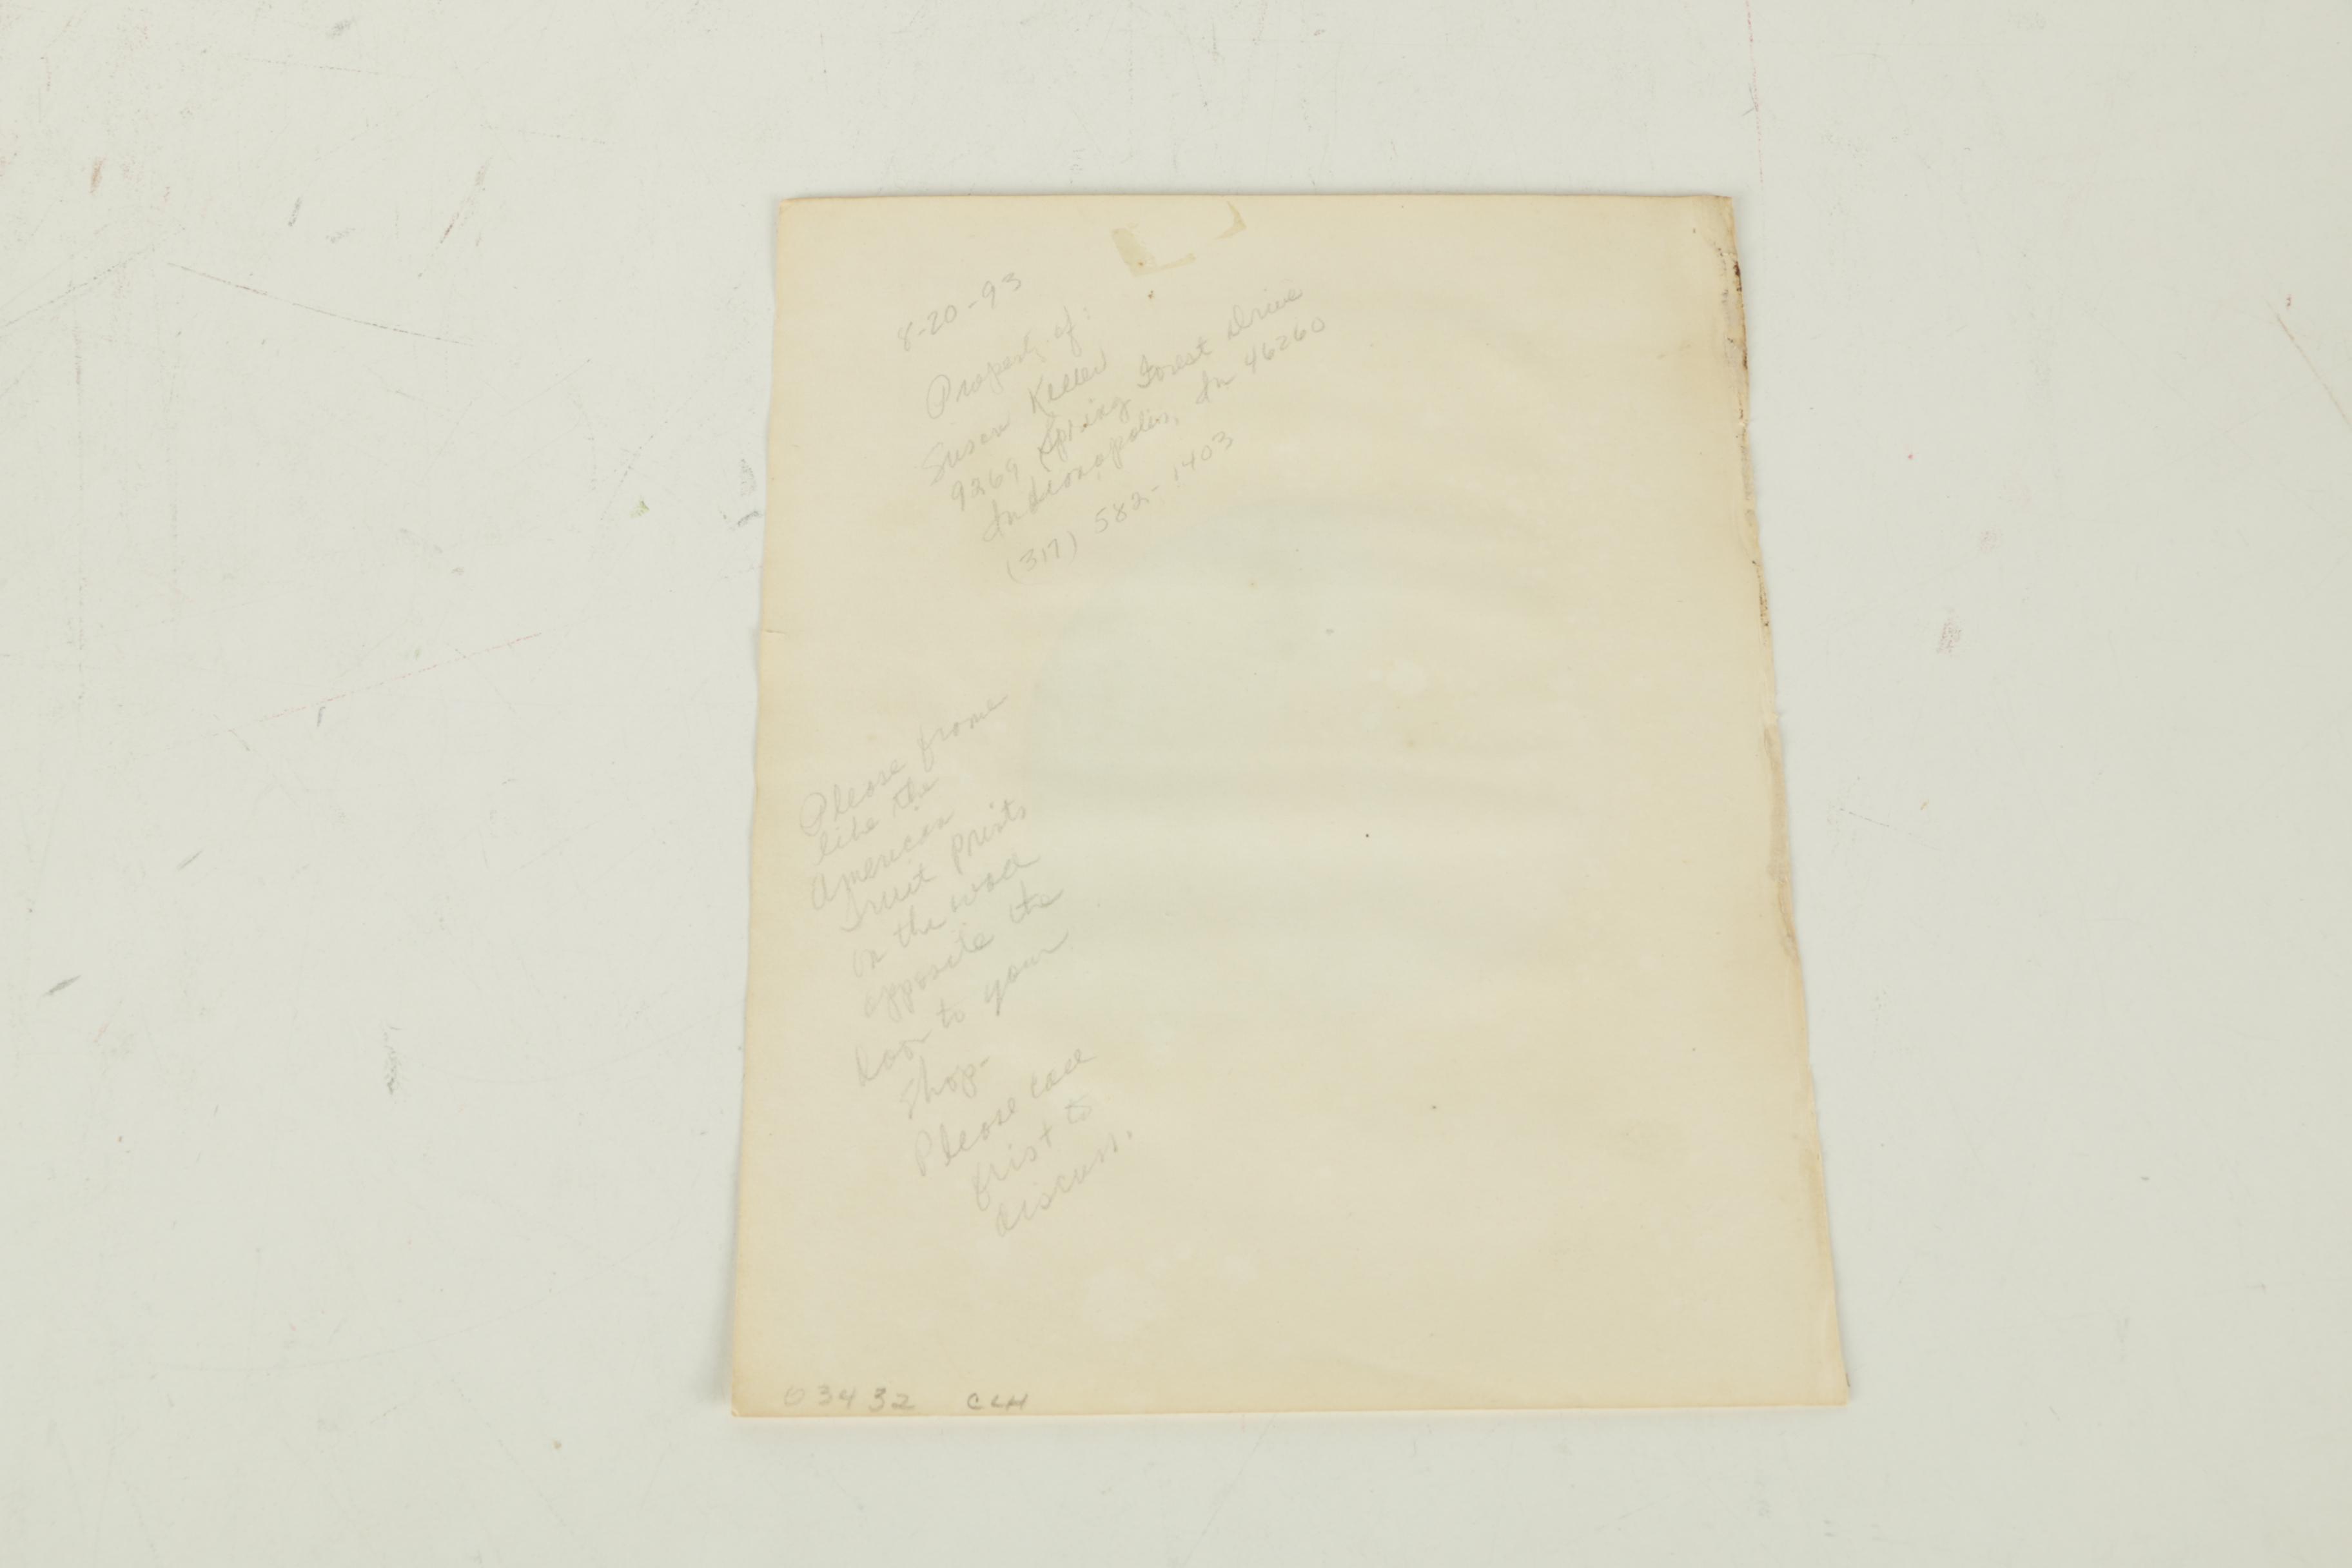 8-20-93
Property of:
Susan Keller
9269 Spring Forest Drive
Indianapolis, In 46260
(317) 582-1403
Please frame
like the
American
Fruit prints
on the wall
opposite the
door to your
shop-
Please call
frist to
discuss.
03432 CLH